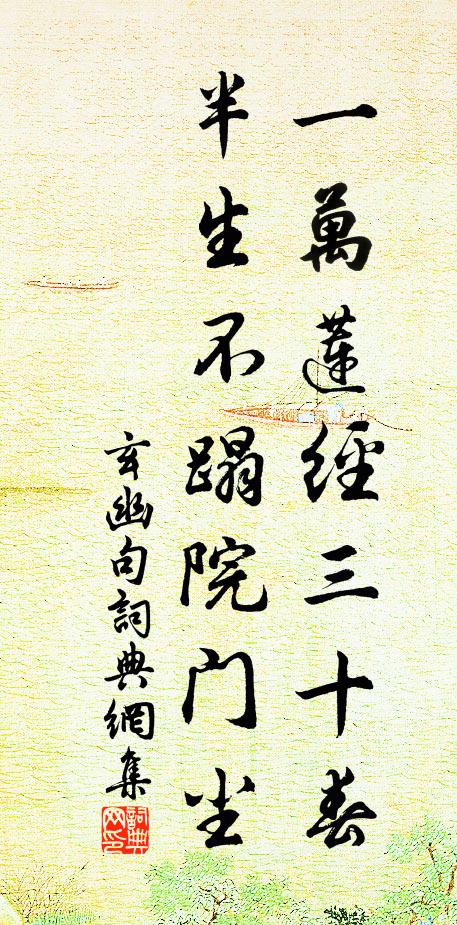 一萬蓮經三十春
半生不蹋院门尘
玄幽句詞典網集
詞典
网印